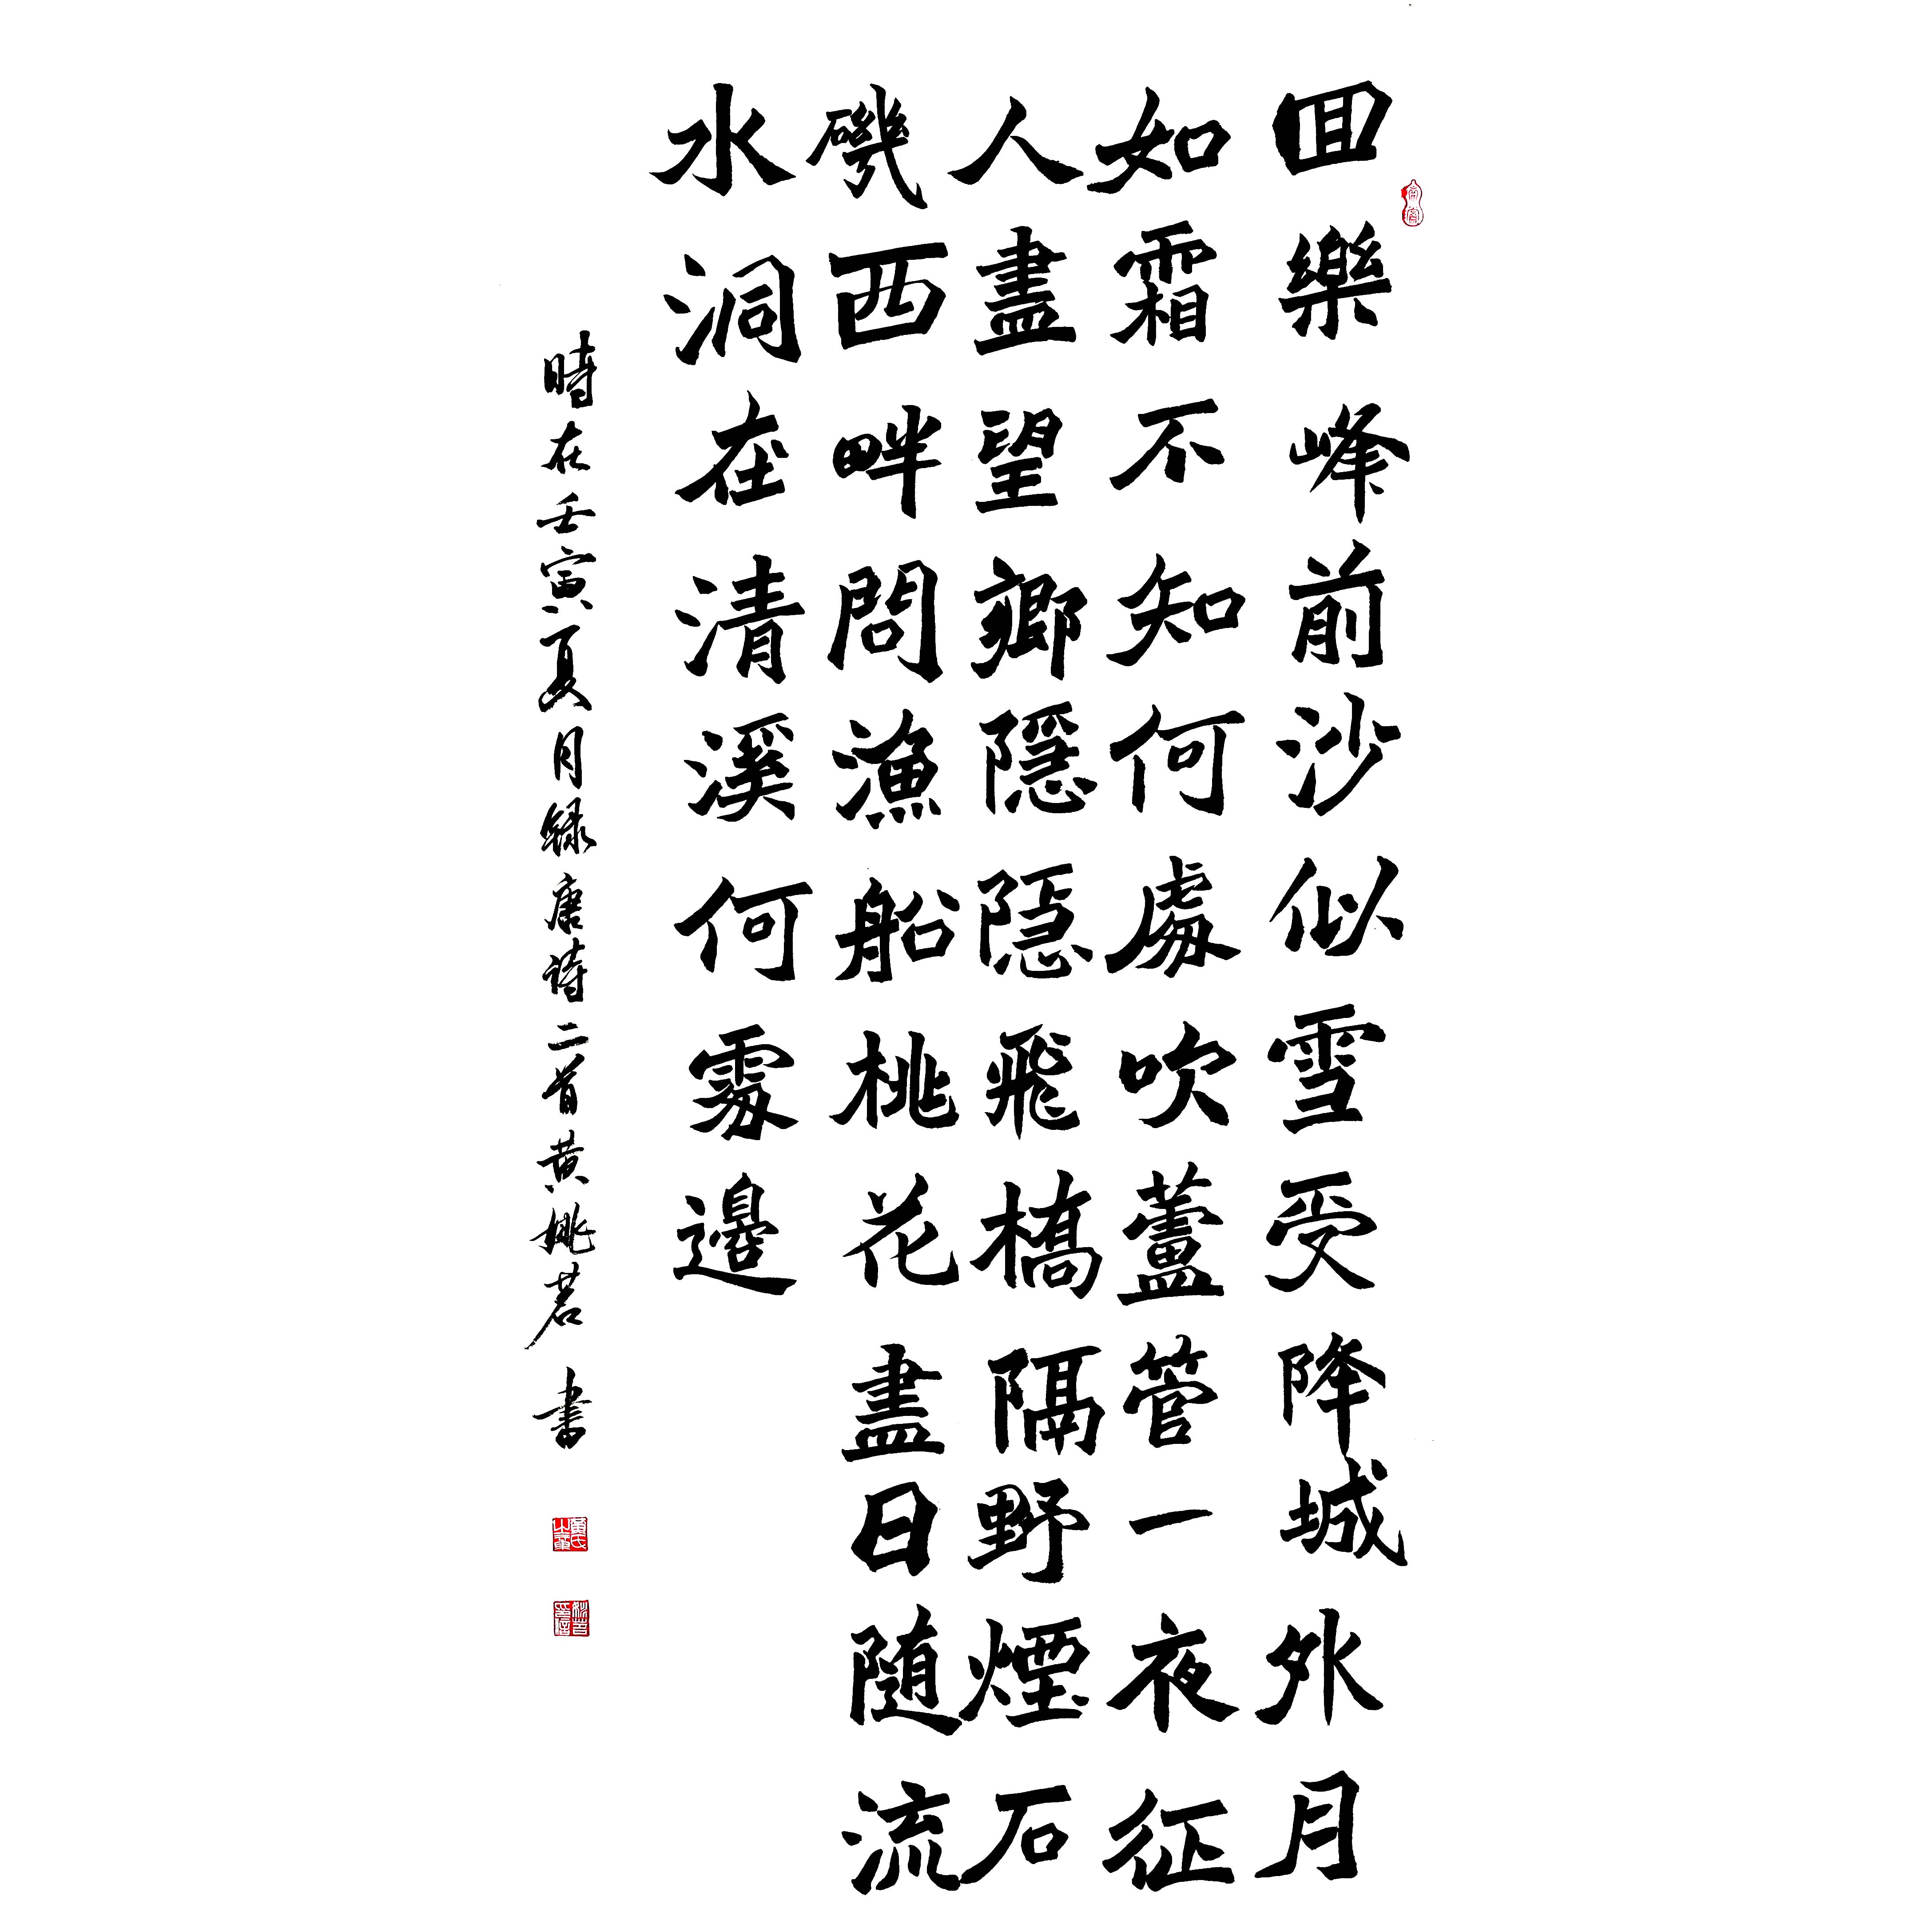 囬樂峰前沙似雪受降城外月
如霜不知何處吹蘆管一夜征
人盡望鄉隱隱飛橋隔野煙石
磯西畔問漁船桃花盡日隨流
水洞在清溪何處邊
時在壬寅夏月録唐詩二首黄桃茗書